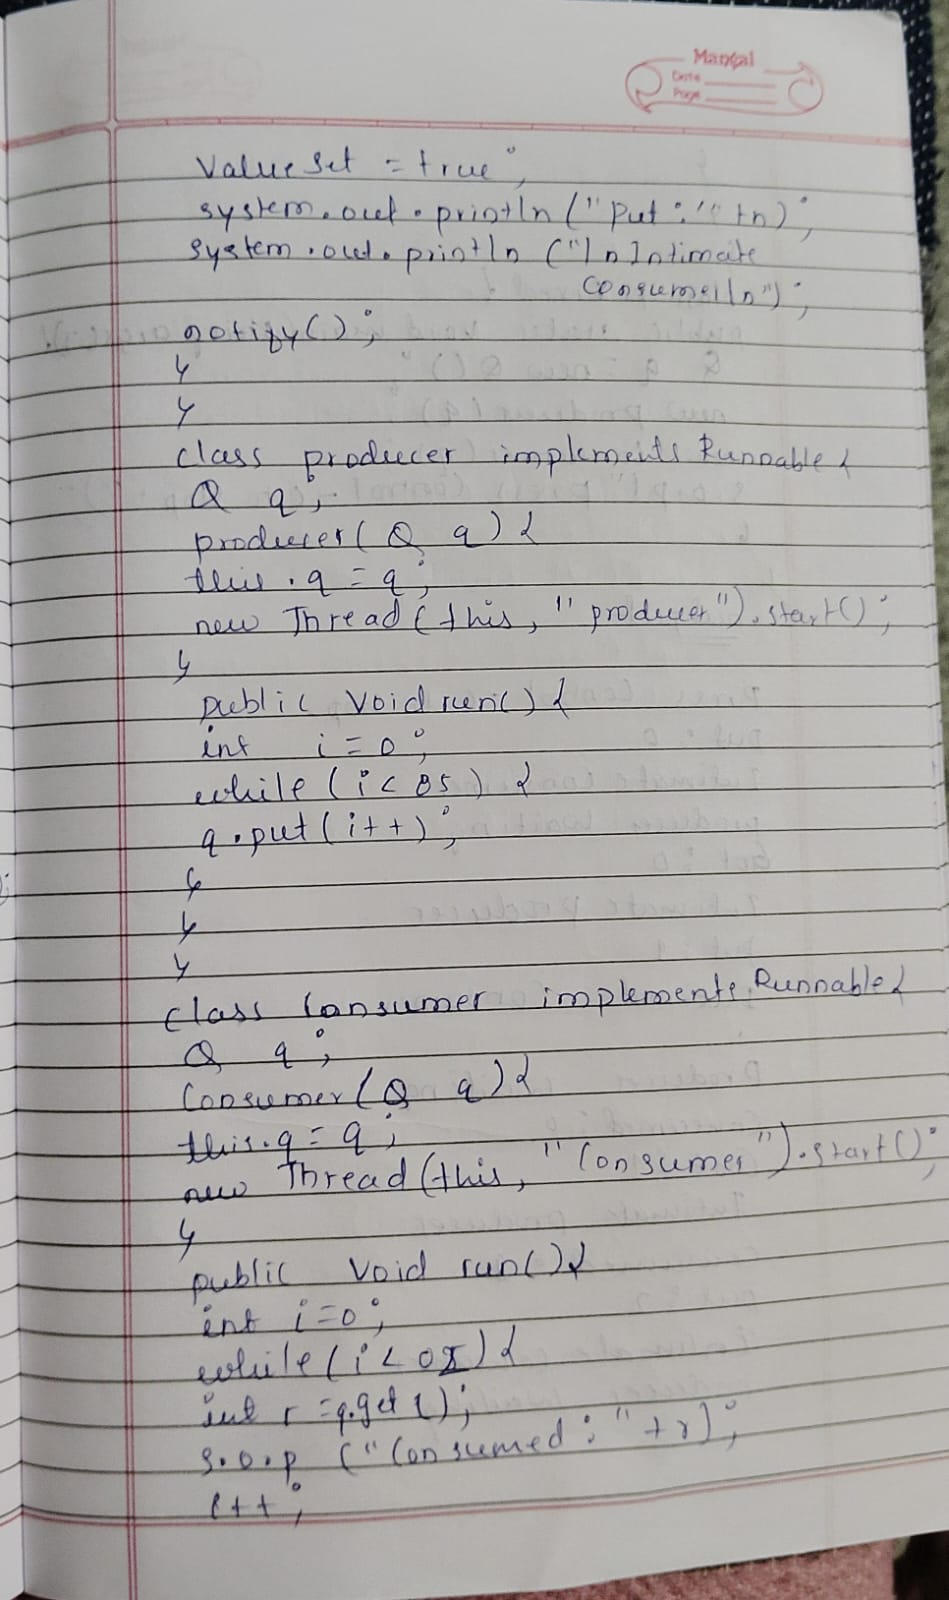 Mangal
Date
Page
Value Set = true;
system.out.println("Put:" +n);
system.out.println("\n Intimate
Consumer\n");
notify();
}
}
class producer implements Runnable {
Q q;
producer(Q q) {
this.q = q;
new Thread(this, "producer").start();
}
public void run() {
int i = 0;
while (i < 05) {
q.put(i++);
}
}
}
class Consumer implements Runnable {
Q q;
Consumer(Q q) {
this.q = q;
new Thread(this, "Consumer").start();
}
public void run() {
int i=0;
while (i < 05) {
int r = q.get();
S.o.p ("Consumed:" +r);
i++;